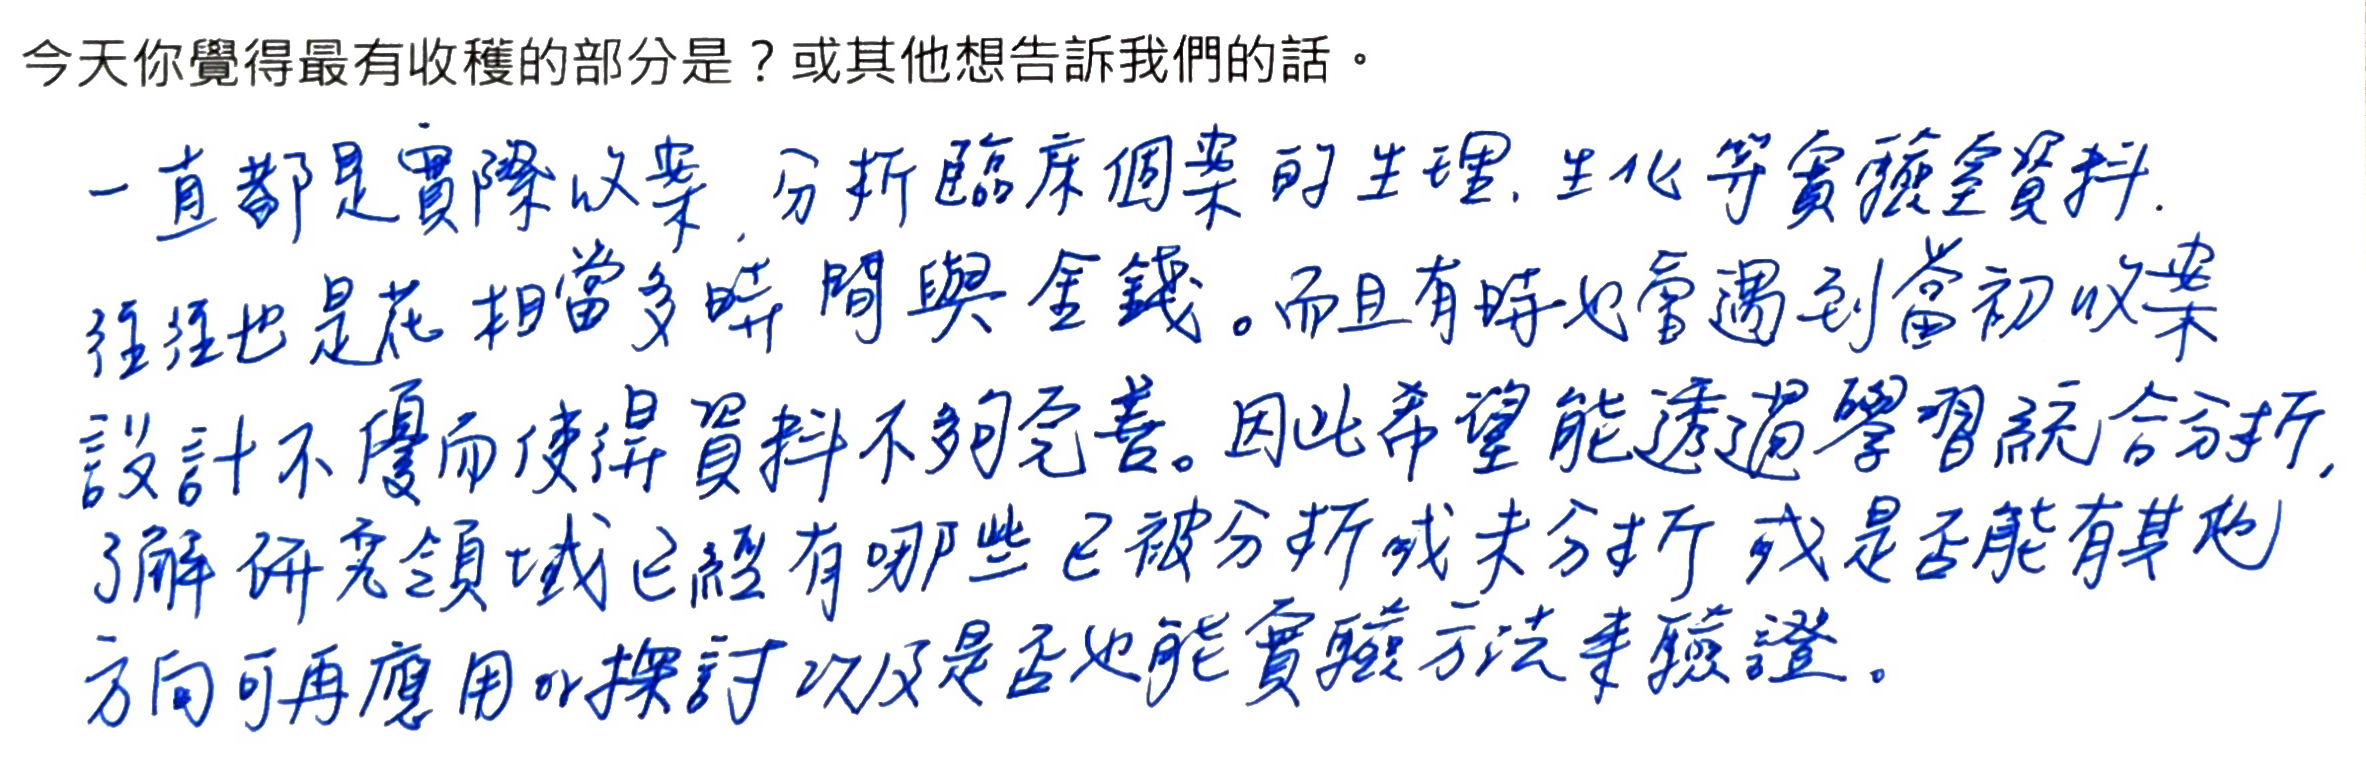 今天你覺得最有收穫的部分是？或其他想告訴我們的話。
一直都是實際收案,分析臨床個案的生理、生化等實驗室資料.
往往也是花相當多時間與金錢。而且有時也會遇到當初收案
設計不優而使得資料不夠完善。因此希望能透過學習統合分析,
了解研究領域已經有哪些已被分析或未分析或是否能有其他
方向可再應用or探討以及是否也能實驗方法來驗證。